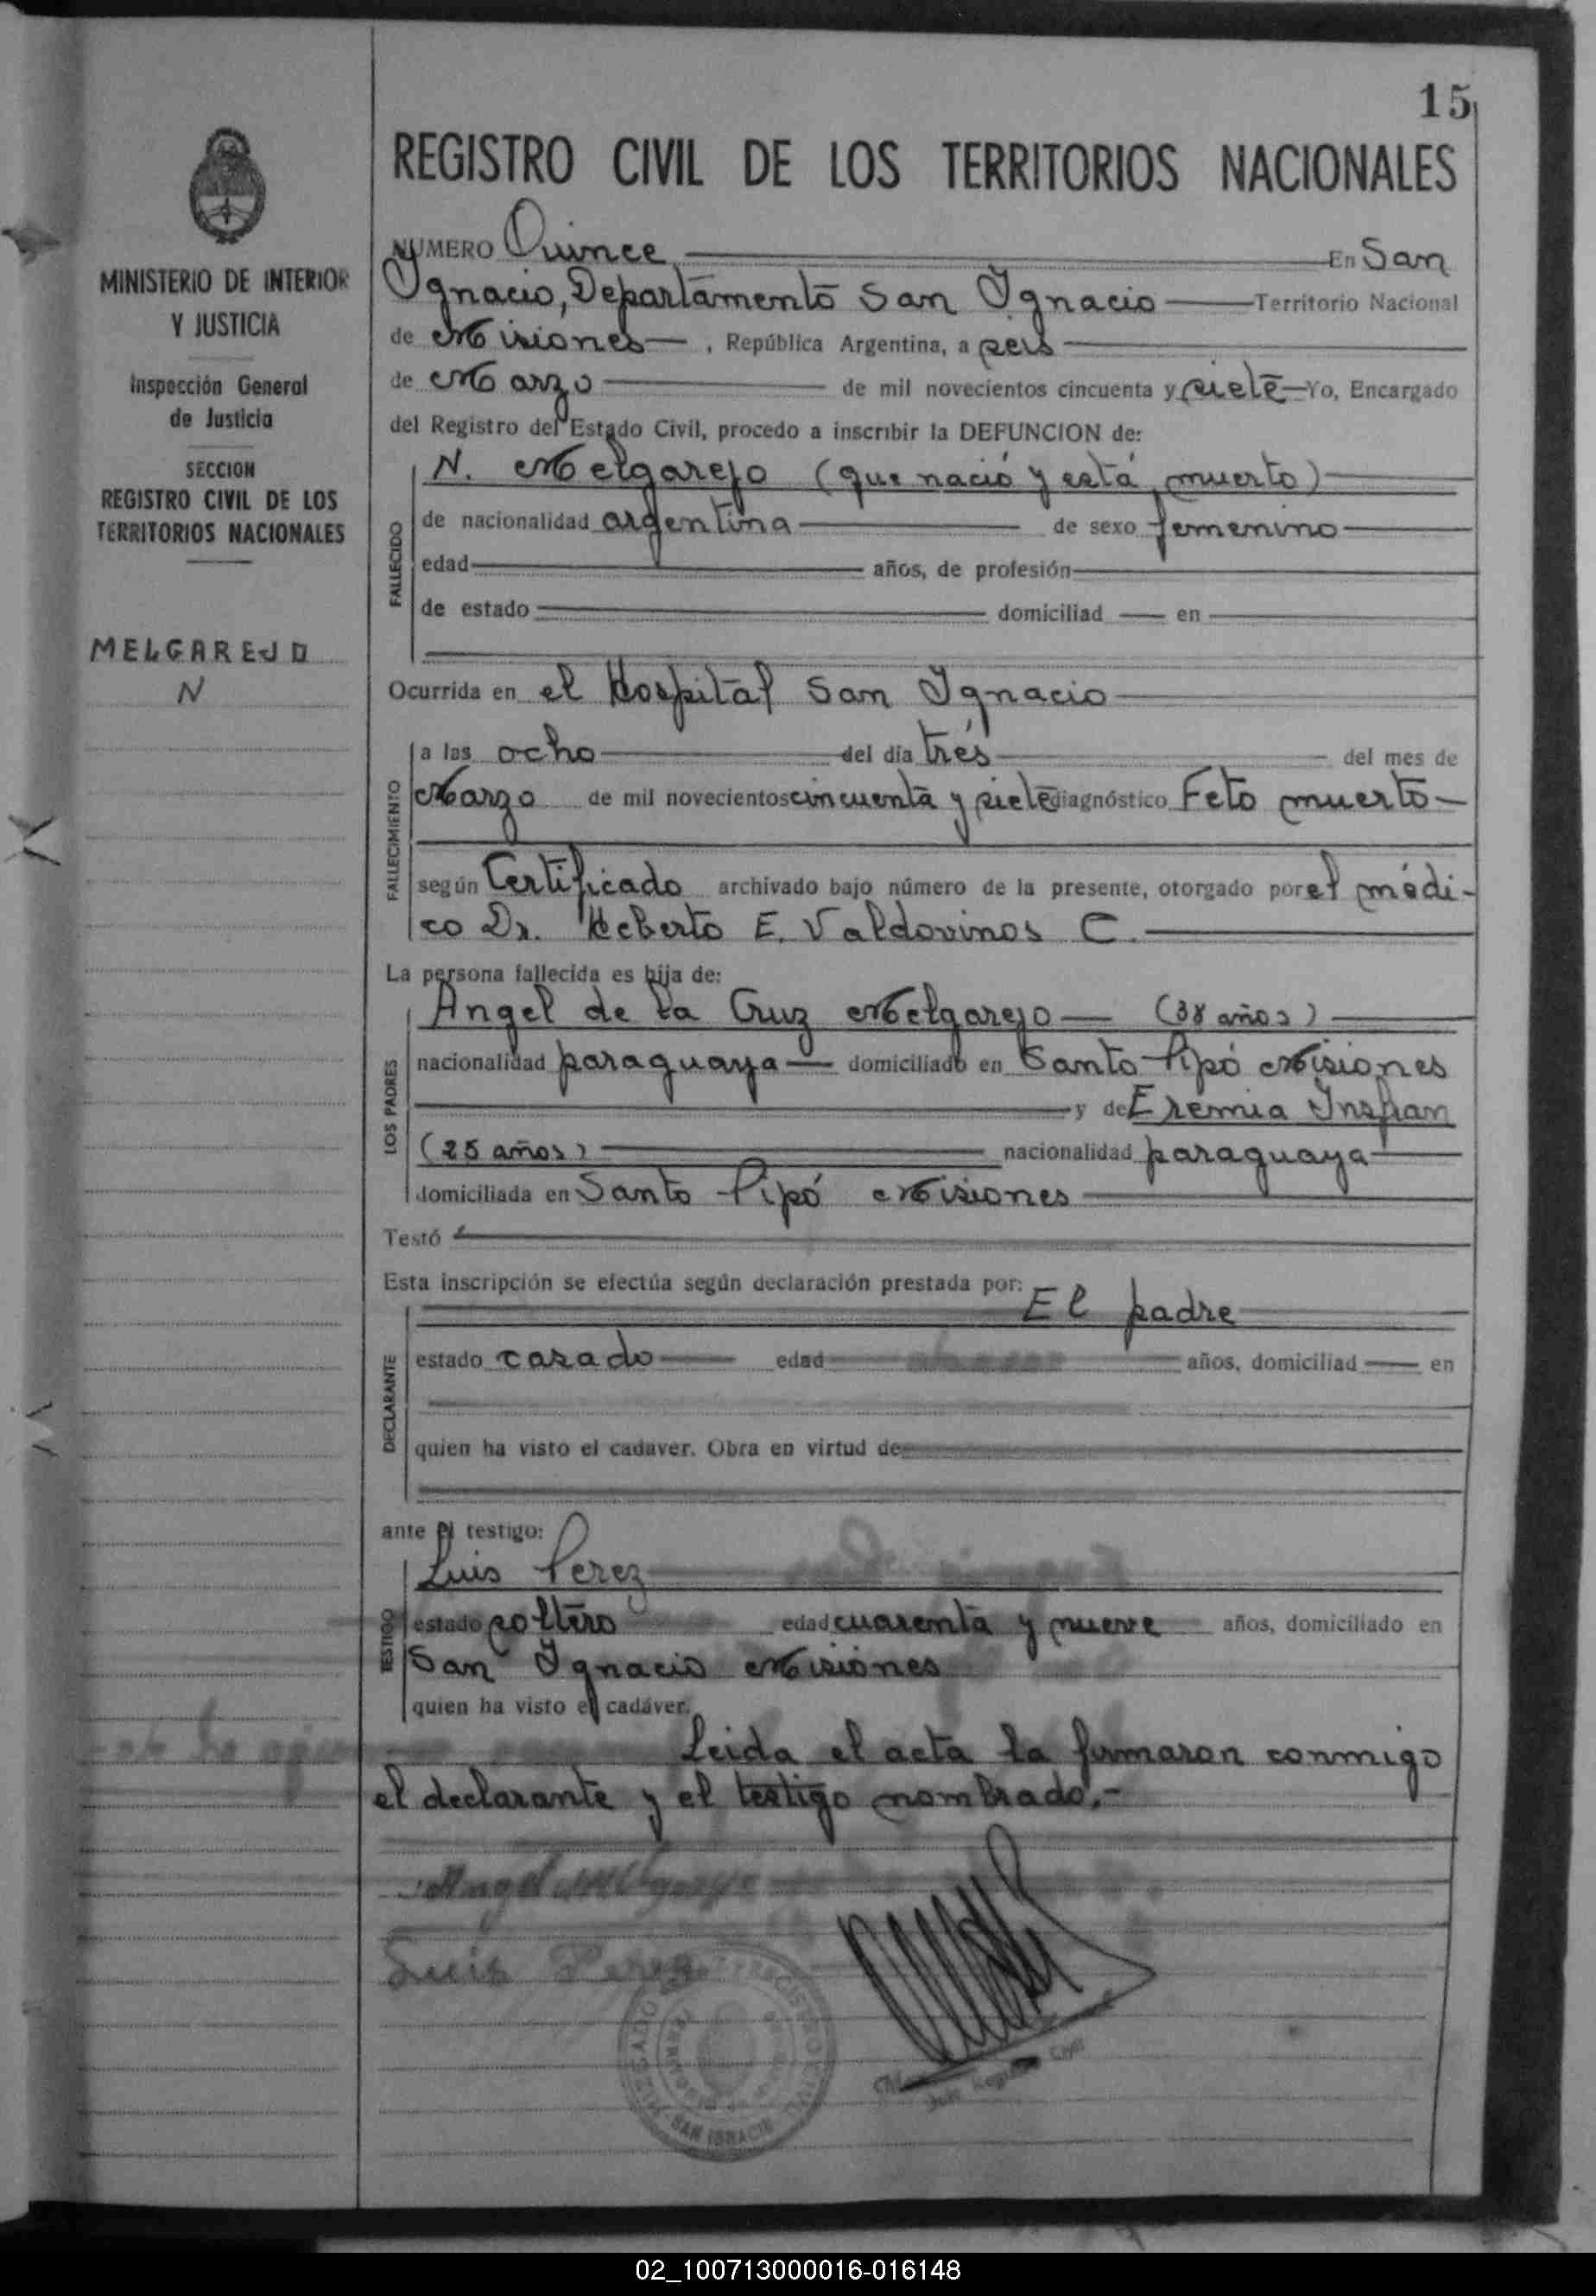 15
REGISTRO CIVIL DE LOS TERRITORIOS NACIONALES
MINISTERIO DE INTERIOR
Y JUSTICIA
Inspección General
de Justicia
SECCION
REGISTRO CIVIL DE LOS
TERRITORIOS NACIONALES
MELGAREJO
N
NUMERO Quince En San
Ygnacio, Departamento San Ygnacio Territorio Nacional
de Misiones, República Argentina, a seis
de Marzo de mil novecientos cincuenta y siete Yo, Encargado
del Registro del Estado Civil, procedo a inscribir la DEFUNCION de:
FALLECIDO
N. Melgarejo (que nació y está muerto)
de nacionalidad argentina de sexo femenino
edad años, de profesión
de estado domiciliad en
Ocurrida en el Hospital San Ygnacio
FALLECIMIENTO
a las ocho del día trés del mes de
Marzo de mil novecientos cincuenta y siete diagnóstico Feto muerto
según Certificado archivado bajo número de la presente, otorgado por el médi-
co Dr. Heberto E. Valdovinos C.
La persona fallecida es hija de:
LOS PADRES
Angel de la Cruz Melgarejo (38 años)
nacionalidad paraguaya domiciliado en Santo Pipó Misiones
y de Eremia Insfran
(25 años) nacionalidad paraguaya
domiciliada en Santo Pipó Misiones
Testó
Esta inscripción se efectúa según declaración prestada por:
DECLARANTE
El padre
estado casado edad años, domiciliad en
quien ha visto el cadaver. Obra en virtud de
ante el testigo:
TESTIGO
Luis Perez
estado soltero edad cuarenta y nueve años, domiciliado en
San Ygnacio Misiones
quien ha visto el cadáver.
Leida el acta la firmaron conmigo
el declarante y el testigo nombrado.-
Angel Melgarejo
Luis Perez
SAN IGNACIO
02_100713000016-016148